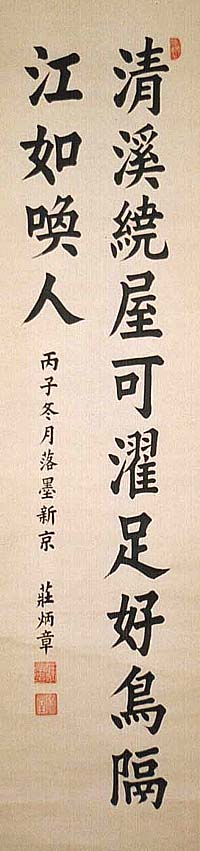 清溪繞屋可濯足好鳥隔
江如喚人
丙子冬月落墨新京　莊炳章